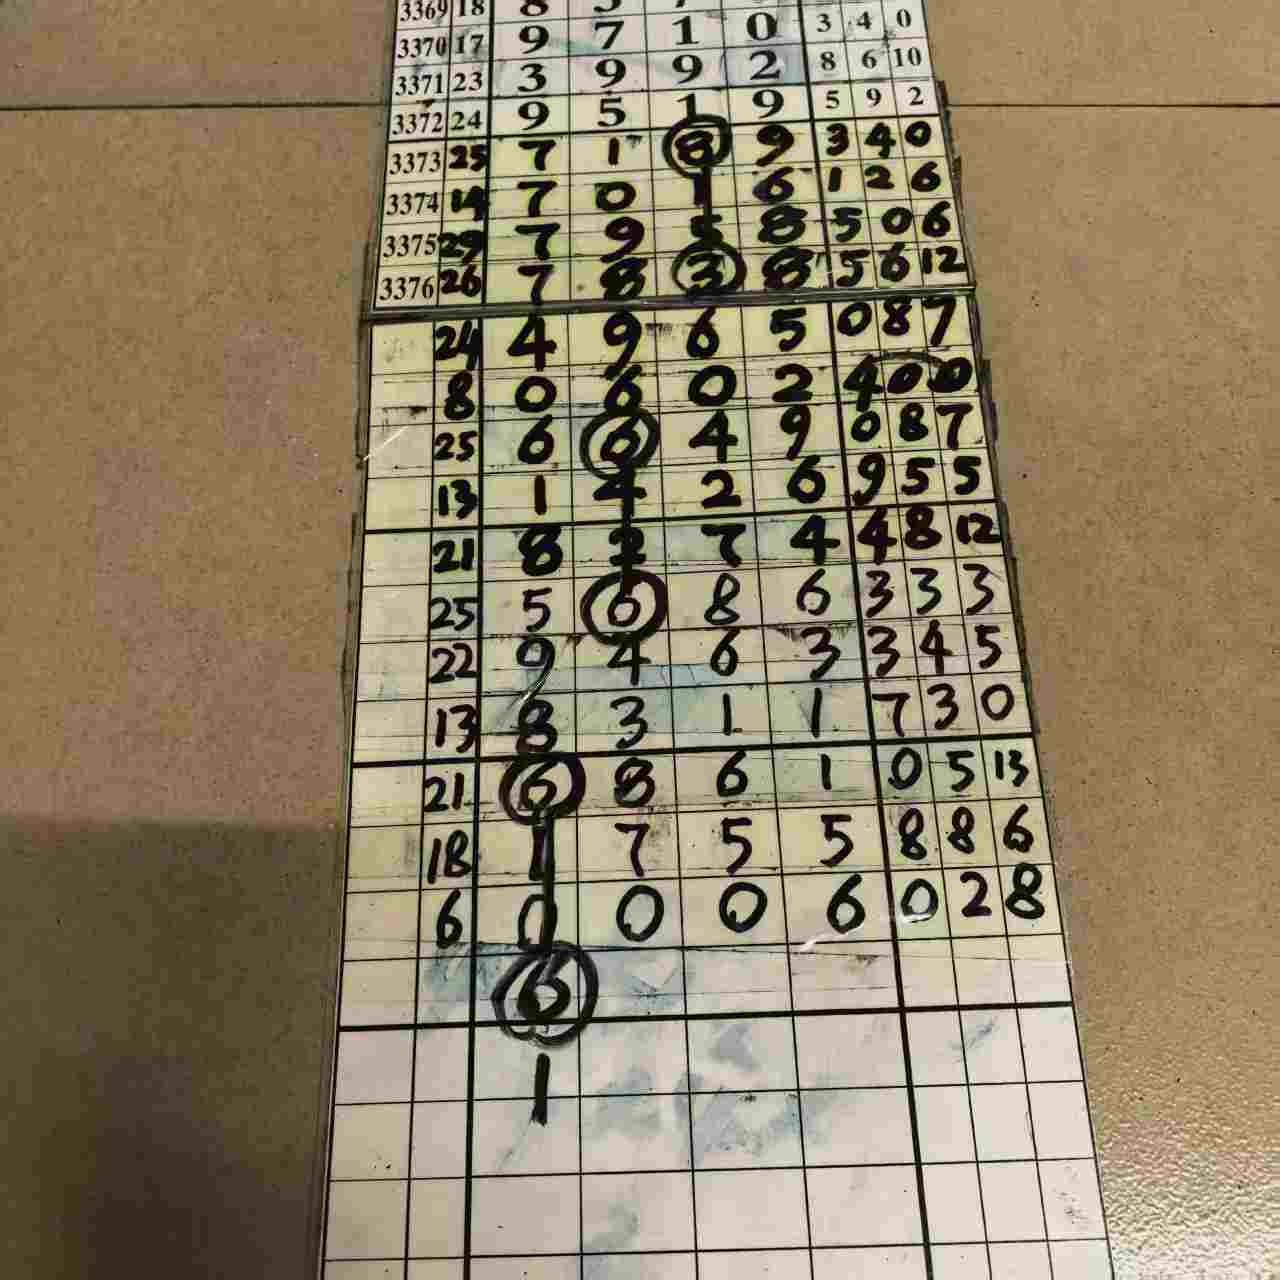 3369 18 8
3370 17 9 7 1 0 3 4 0
3371 23 3 9 9 2 8 6 10
3372 24 9 5 1 9 5 9 2
3373 25 7 1 8 9 3 4 0
3374 14 7 0 1 6 1 2 6
3375 29 7 9 5 8 5 0 6
3376 26 7 8 3 8 5 6 12
24 4 9 6 5 0 8 7
8 0 6 0 2 4 0 0
25 6 6 4 9 0 8 7
13 1 4 2 6 9 5 5
21 8 2 7 4 4 8 12
25 5 6 8 6 3 3 3
22 9 4 6 3 3 4 5
13 8 3 1 1 7 3 0
21 6 8 6 1 0 5 13
18 1 7 5 5 8 8 6
6 0 0 0 6 0 2 8
6
1